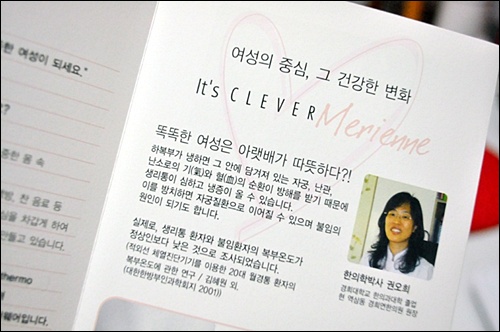 한 여성이 되세요."
고?
증한 몸 속
방, 찬 음료 등
심을 차갑게 하여
만들고 있습니다.
hermo
웨어입니다.
여성의 중심, 그 건강한 변화
It's CLEVER Merienne
똑똑한 여성은 아랫배가 따뜻하다?!
하복부가 냉하면 그 안에 담겨져 있는 자궁, 난관,
난소로의 기(氣)와 혈(血)의 순환이 방해를 받기 때문에
생리통이 심하고 냉증이 올 수 있습니다.
이를 방치하면 자궁질환으로 이어질 수 있으며 불임의
원인이 되기도 합니다.
실제로, 생리통 환자와 불임환자의 복부온도가
정상인보다 낮은 것으로 조사되었습니다.
(적외선 체열진단기기를 이용한 20대 월경통 환자의
복부온도에 관한 연구 / 김혜원 외.
(대한한방부인과학회지 2001))
한의학박사 권오희
경희대학교 한의과대학 졸업
현 역삼동 경희연한의원 원장